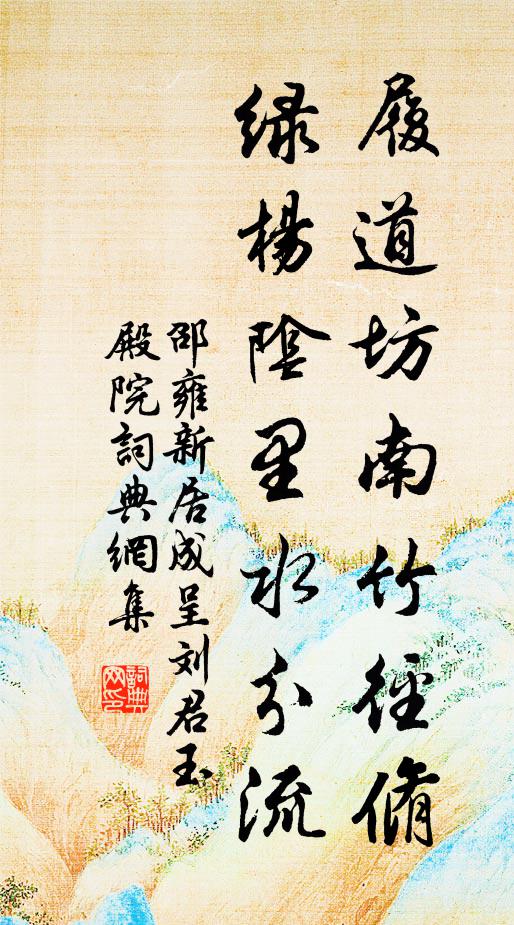 履道坊南竹徑脩
绿楊陰里水分流
邵雍新居成呈刘君玉
殿院詞典網集
詞典
网印